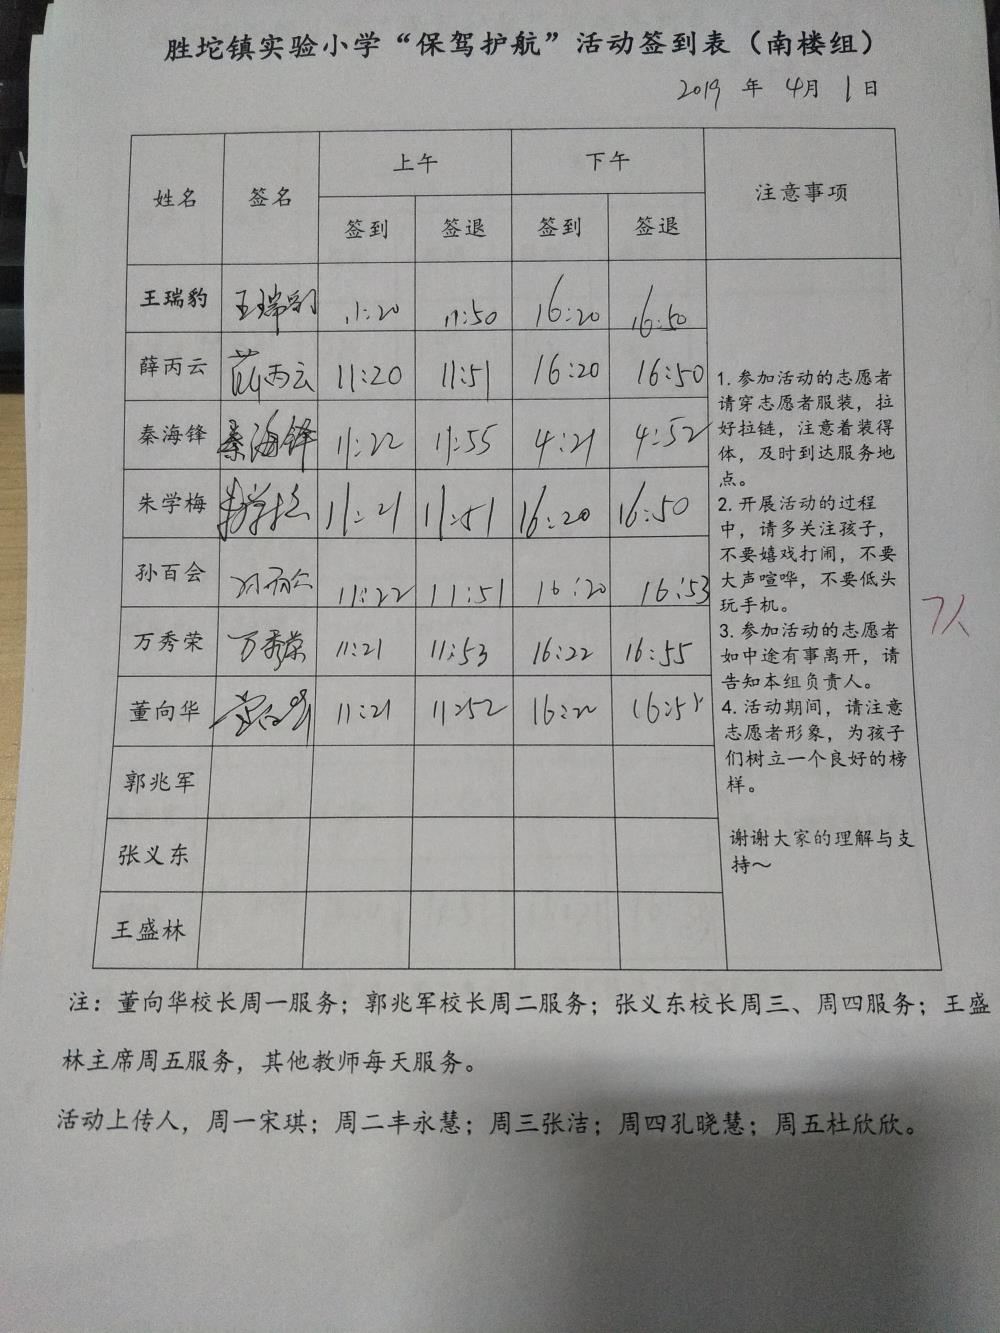 胜坨镇实验小学“保驾护航”活动签到表（南楼组）
2019 年 4月 1日
姓名 签名 上午 下午 注意事项
签到 签退 签到 签退
王瑞豹 王瑞豹 11:20 11:50 16:20 16:50
薛丙云 薛丙云 11:20 11:51 16:20 16:50
秦海锋 秦海锋 11:22 11:55 4:21 4:52
朱学梅 朱学梅 11:21 11:51 16:20 16:50
孙百会 孙百会 11:22 11:51 16:20 16:53
万秀荣 万秀荣 11:21 11:53 16:22 16:55
董向华 董向华 11:21 11:52 16:22
郭兆军
张义东
王盛林
1. 参加活动的志愿者
请穿志愿者服装，拉
好拉链，注意着装得
体，及时到达服务地
点。
2. 开展活动的过程
中，请多关注孩子，
不要嬉戏打闹，不要
大声喧哗，不要低头
玩手机。
3. 参加活动的志愿者
如中途有事离开，请
告知本组负责人。
4. 活动期间，请注意
志愿者形象，为孩子
们树立一个良好的榜
样。
谢谢大家的理解与支
持～
7人
注：董向华校长周一服务；郭兆军校长周二服务；张义东校长周三、周四服务；王盛
林主席周五服务，其他教师每天服务。
活动上传人，周一宋琪；周二丰永慧；周三张洁；周四孔晓慧；周五杜欣欣。